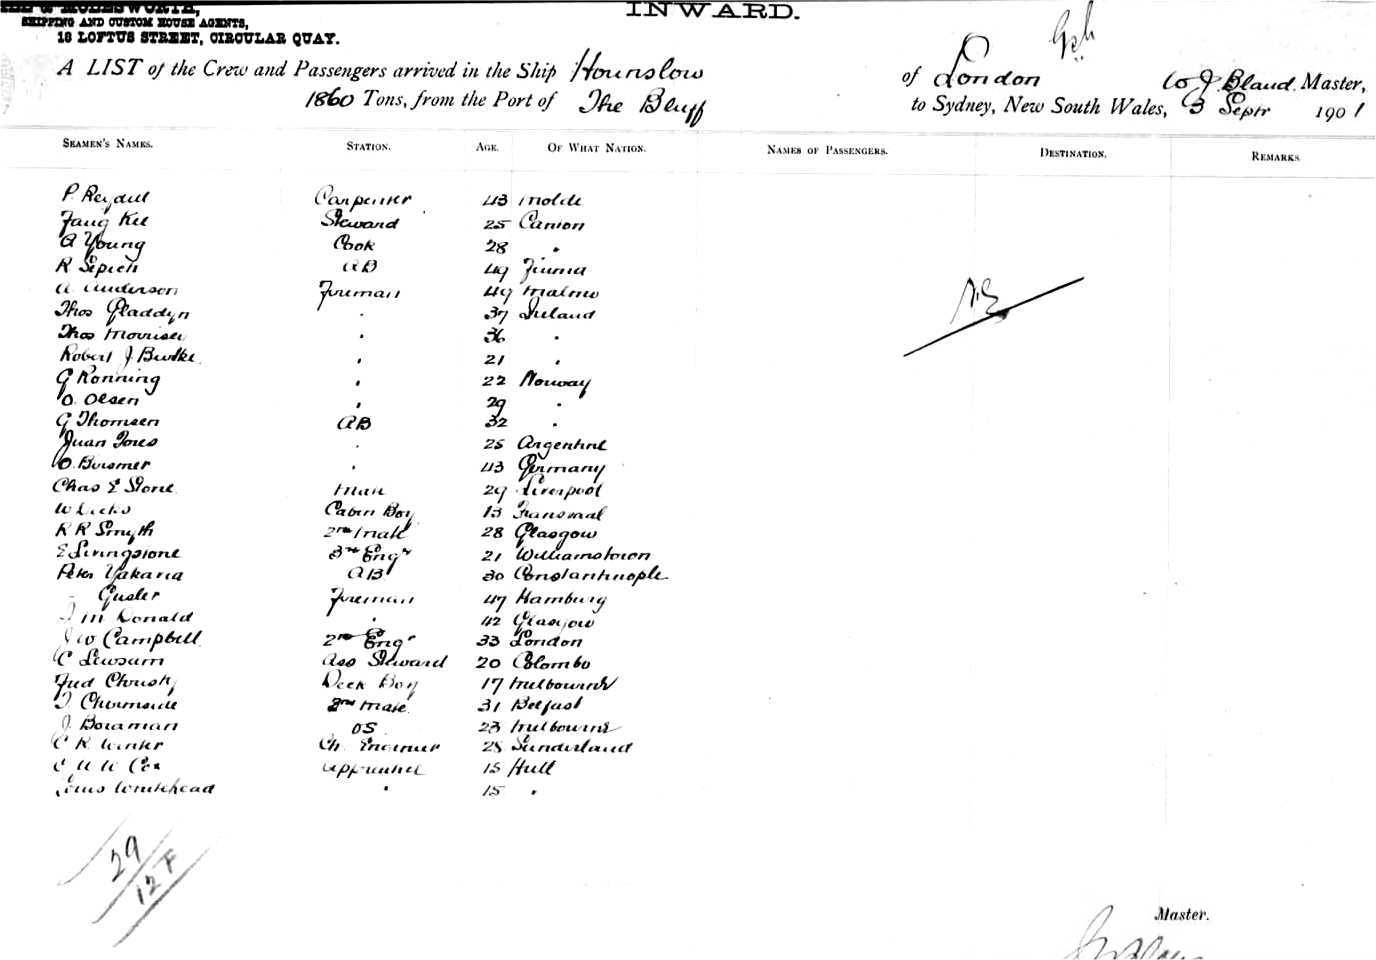 & MOLESWORTH,
SHIPPING AND CUSTOM HOUSE AGENTS,
18 LOFTUS STREET, CIRCULAR QUAY.
INWARD.
A LIST of the Crew and Passengers arrived in the Ship Hounslow of London W J Bland Master,
1860 Tons, from the Port of The Bluff to Sydney, New South Wales, 3 Septr 1901
SEAMEN'S NAMES. STATION. AGE. OF WHAT NATION. NAMES OF PASSENGERS. DESTINATION. REMARKS
P. Carpenter 43 Molde
Fang Kee Steward 25 Canton
A Young Cook 28 "
R Sepich AB 49 Fiume
A Anderson Fireman 49 Malmo
Thos Gladdyn " 37 Ireland
Thos " 36 "
Robert J Burke " 21 "
G Ronning " 22 Norway
O. Olsen " 29 "
G Thomsen AB 32 "
Juan Jones " 25 Argentine
O. " 43 Germany
Chas E Stone Mate 29 Liverpool
W Cabin Boy 13 Transvaal
R R Smyth 2nd Mate 28 Glasgow
E Livingstone 3rd Engr 21 Williamstown
Peter Yakaria AB 30 Constantinople
Gusler Fireman 47 Hamburg
McDonald " 42 Glasgow
J W Campbell 2nd Engr 33 London
C Lewsum Ass Steward 20 Colombo
Fred Deck Boy 17 Melbourne
J Chirnside 2nd Mate 31 Belfast
J. Boraman OS 23 Melbourne
C R Winter Ch. Engineer 28 Sunderland
C W W Cox Apprentice 15 Hull
Louis Whitehead " 15 "
29
12 F
Master.